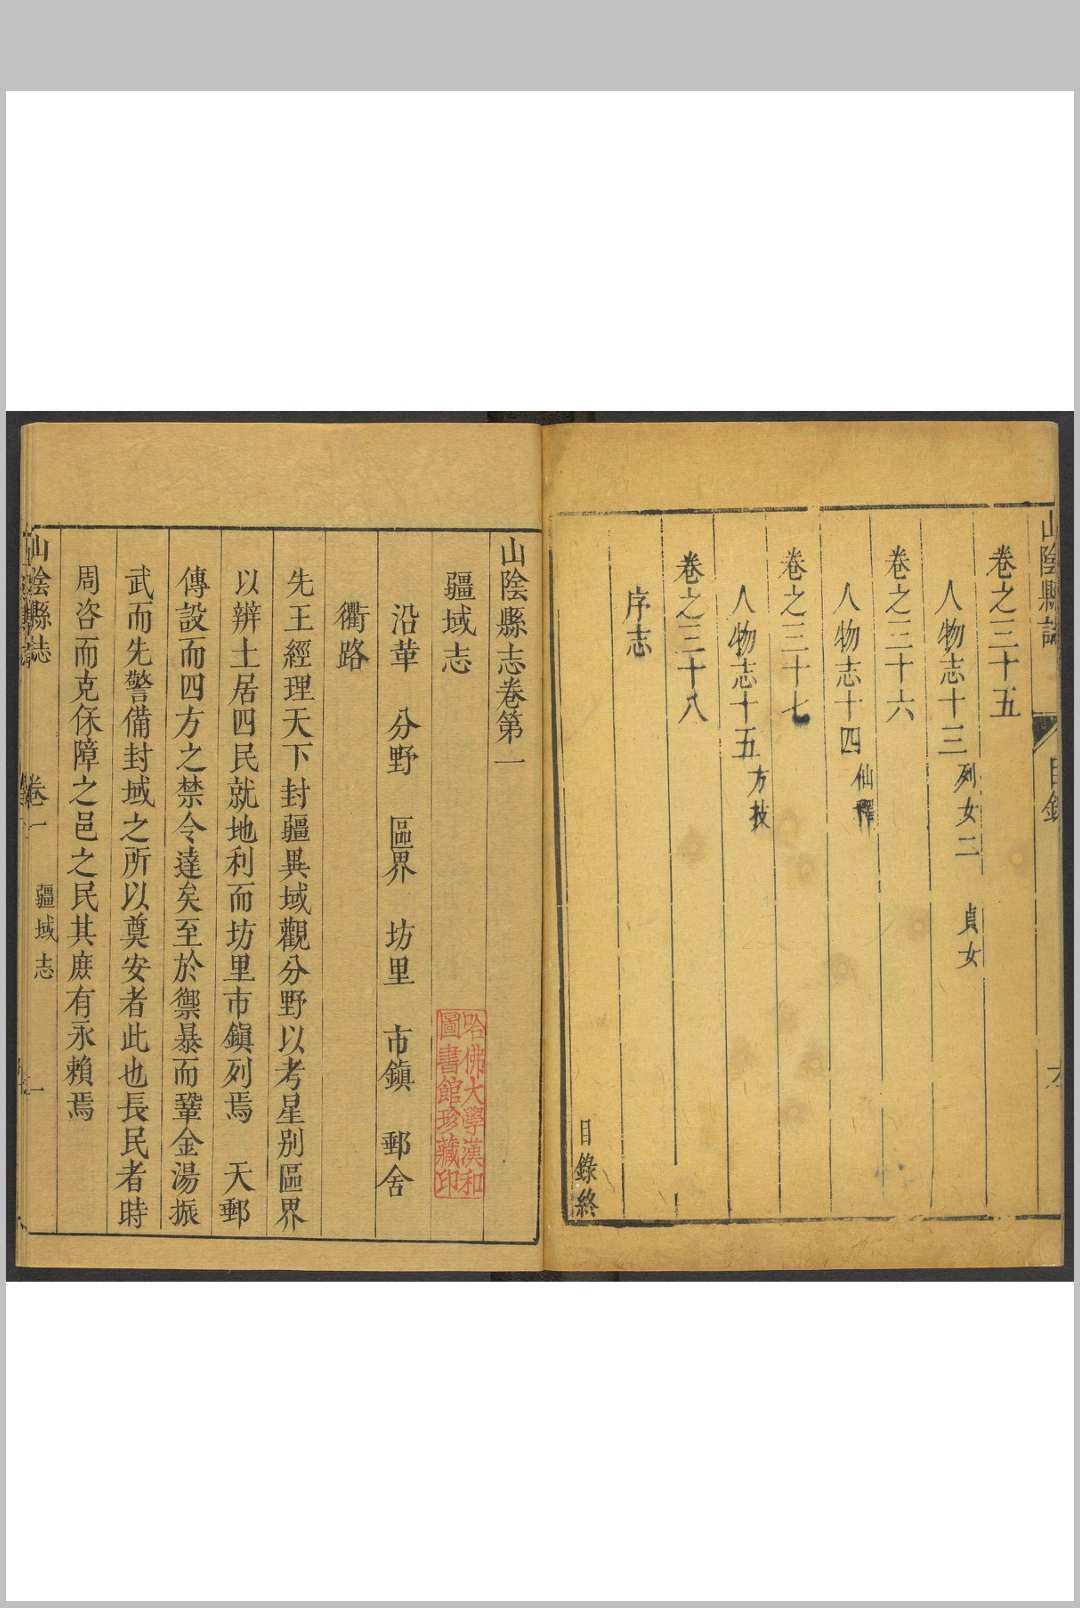 山陰縣誌
目錄
卷之三十五
人物志十三 列女二 貞女
卷之三十六
人物志十四 仙釋
卷之三十七
人物志十五 方技
卷之三十八
序志
目錄終
山陰縣志卷第一
疆域志
沿革 分野 區界 坊里 市鎭 郵舍
衢路
先王經理天下封疆異域觀分野以考星别區界
以辨土居四民就地利而坊里市鎭列焉 天郵
傳設而四方之禁令達矣至於禦暴而鞏金湯振
武而先警備封域之所以奠安者此也長民者時
周咨而克保障之邑之民其庶有永賴焉
山陰縣誌
卷一 疆域志 一
哈佛大學漢和
圖書館珍藏印